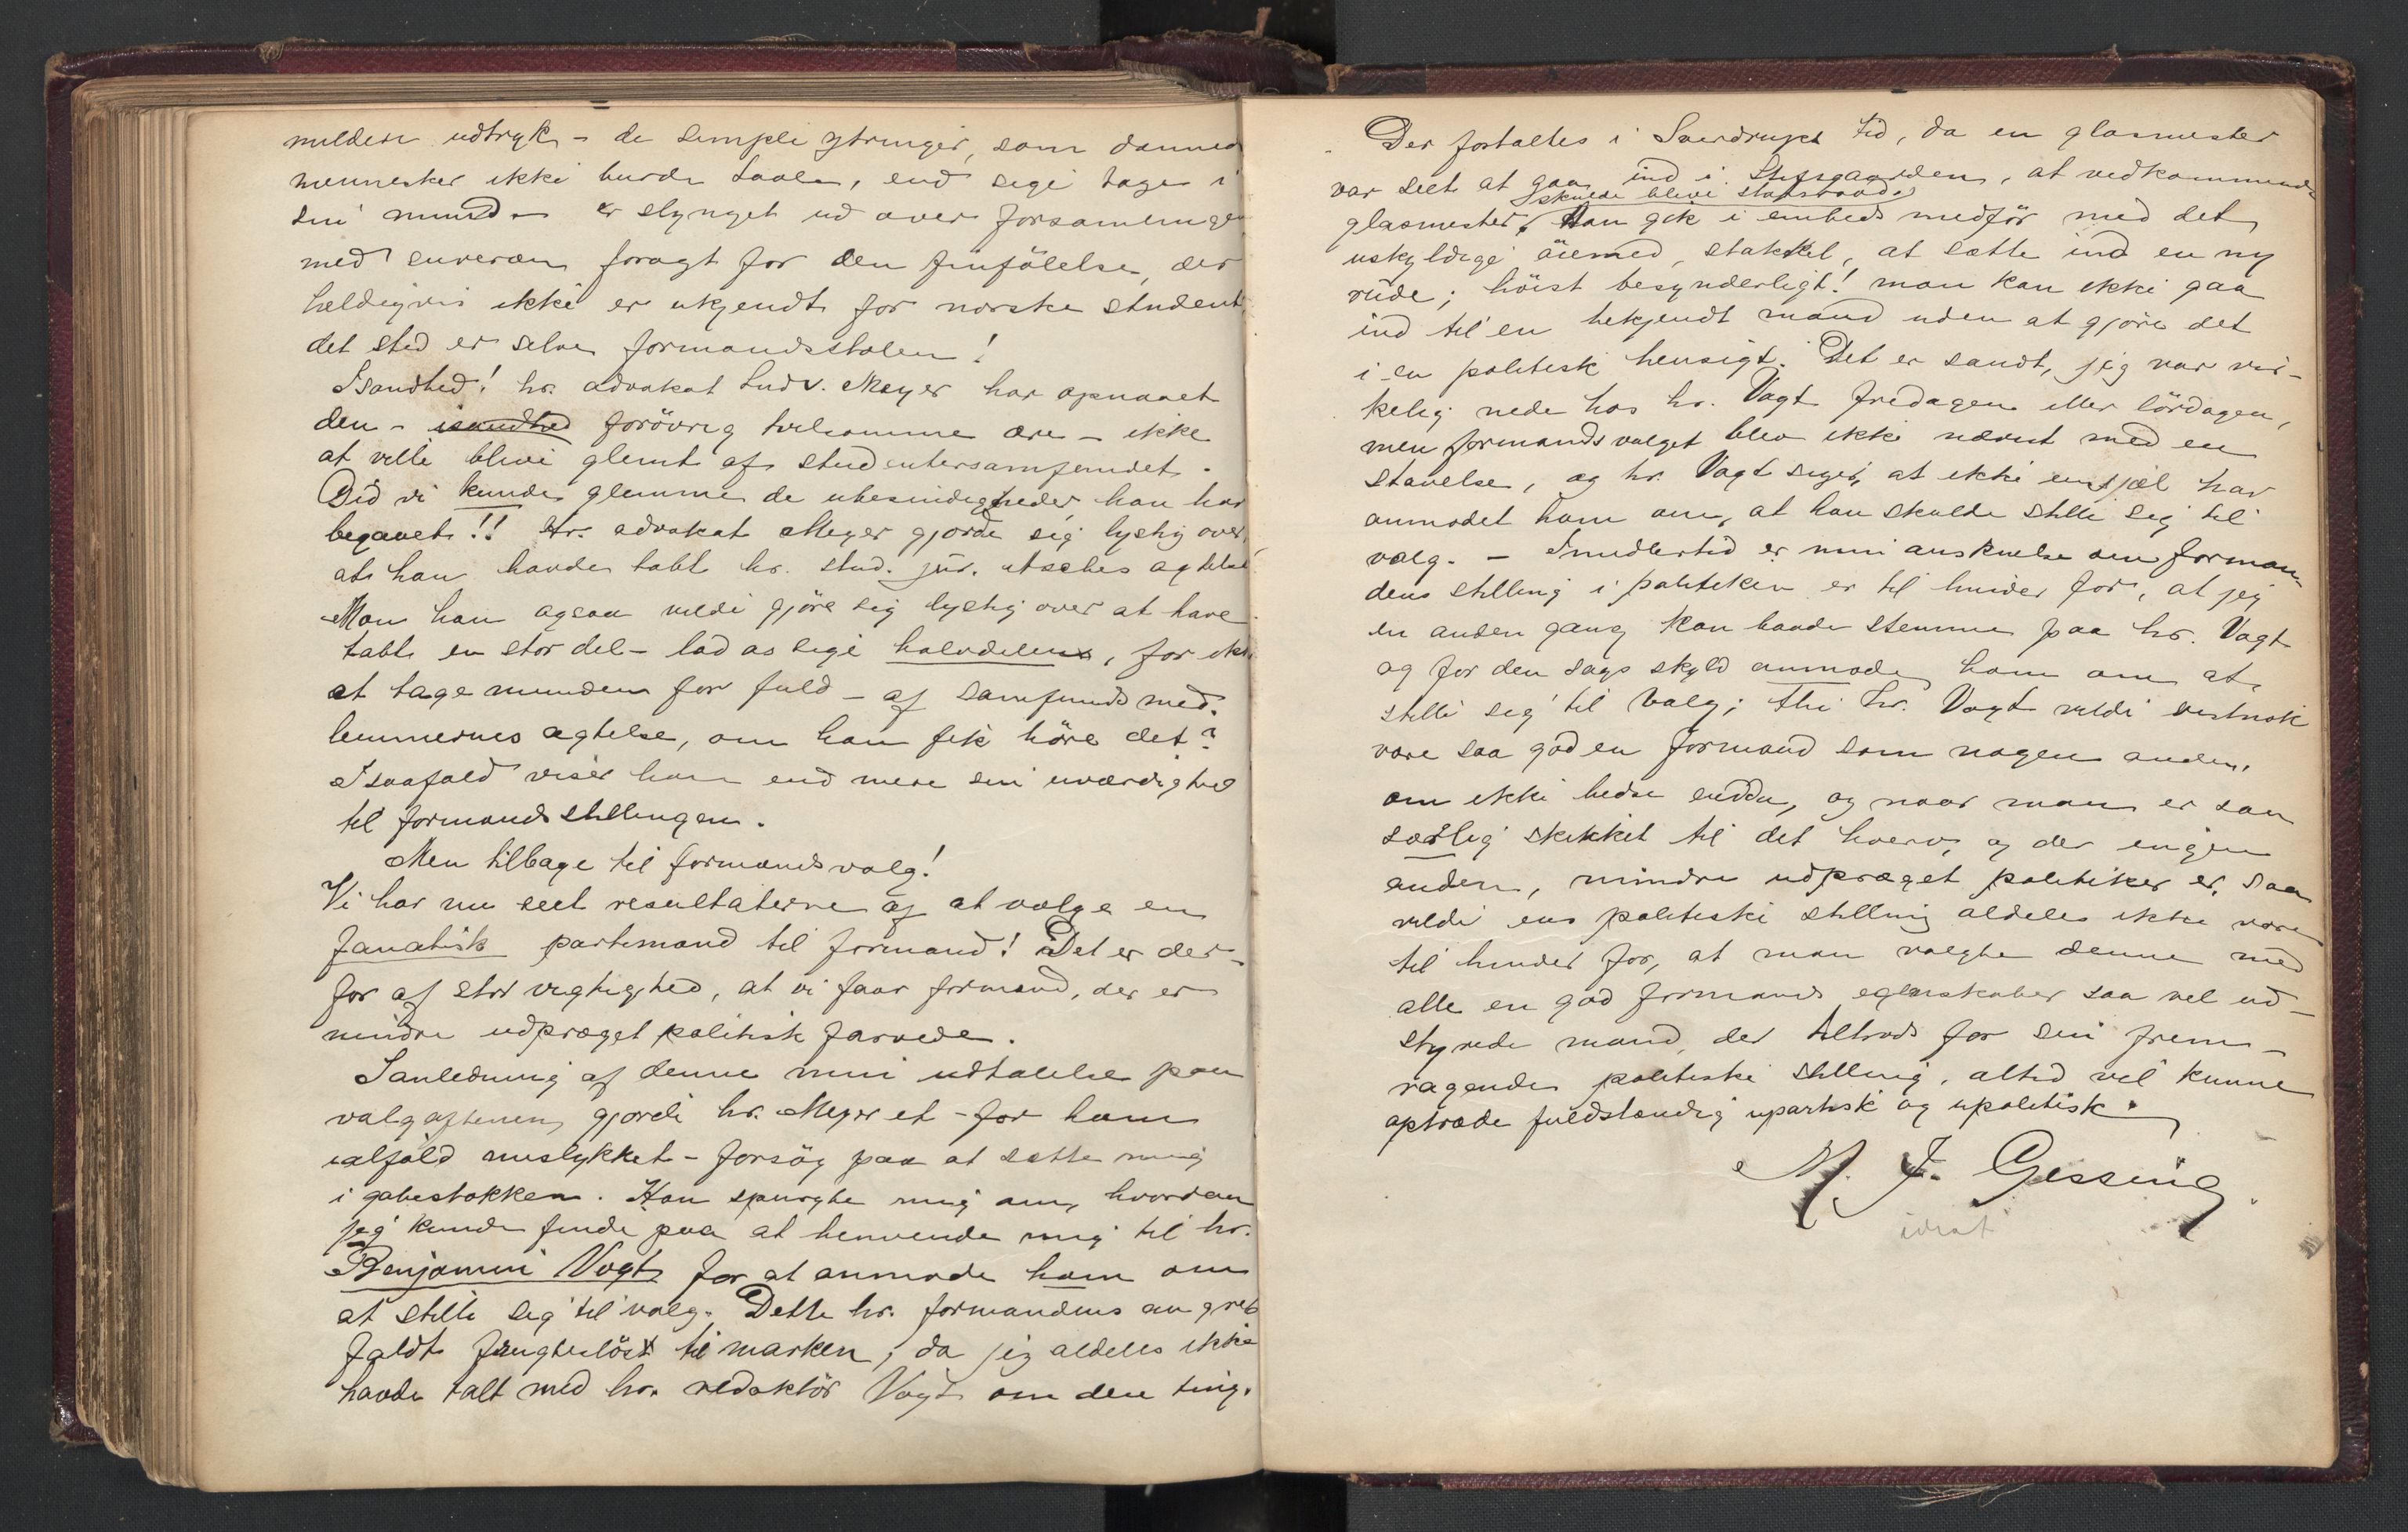 mildere udtryk – de simple ytringer, som danned
mennesker ikke burde taale, end sige tage i
sin mund – er slynget ud over forsamlingen
med suveræn foragt for den finfölelse, der
heldigvis ikke er ukjendt for norske student
det sted er selve formandsstolen!
Isandhed! hr. advokat Ludv. Meyer har opnaaet
den – isandhed forövrig tvilsomme ære – ikke
at ville blive glemt af studentersamfundet.
Gid vi kunde glemme de ubesindigheder han har
begaaet!! Hr. advokat Meyer gjorde sig lystig over,
at han havde tabt hr. stud. jur. Utsches agtelse
Mon han ogsaa vilde gjöre sig lystig over at have
tabt en stor del – lad os sige halvdelen, for ikke
at tage munden for fuld – af samfundsmed-
lemmernes agtelse, om han fik höre det?
Isaafald viser han end mere sin uværdighed
til formandsstillingen.
Men tilbage til formandsvalg!
Vi har nu seet resultaterne af at vælge en
fanatisk partimand til formand! Det er der-
for af stor vigtighed, at vi faar formænd, der er
mindre udpræget politisk farvede.
I anledning af denne min udtalelse paa
valgaftenen gjorde hr. Meyer et – for ham
ialfald mislykket – forsög paa at sætte mig
i gabestokken. Han spurgte mig om, hvordan
jeg kunde finde paa at henvende mig til hr.
Benjamin Vogt for at anmode ham om
at stille sig til valg. Dette hr. formandens angreb
faldt frugteslöst til marken, da jeg aldeles ikke
havde talt med hr. redaktör Vogt om den ting.
Der fortaltes i Sverdrups tid, da en glasmester
var seet at gaa ind i Stiftsgaarden, at vedkommende
skulde blive statsraad.
glasmester, Han gik i embeds medför med det
uskyldige öiemed, stakkel, at sætte ind en ny
rude; höist besynderligt! man kan ikke gaa
ind til en bekjendt mand uden at gjöre det
i en politisk hensigt. Det er sandt, jeg var vir-
kelig nede hos hr. Vogt fredagen eller lördagen,
men formandsvalget blev ikke nævnt med en
stavelse, og hr. Vogt siger, at ikke en sjæl har
anmodet ham om, at han skulde stille sig til
valg. – Imidlertid er min anskuelse om forman-
dens stilling i politiken er til hinder for, at jeg
en anden gang kan baade stemme paa hr. Vogt
og for den sags skyld anmode ham om at
stille sig til valg; thi hr. Vogt vilde vistnok
være saa god en formand som nogen anden,
om ikke bedre endda, og naar man er saa
særlig skikket til det hverv, og der ingen
anden, mindre udpræget politiker er, saa
vilde ens politiske stilling aldeles ikke være
til hinder for, at man valgte denne med
alle en god formands egenskaber saa vel ud-
styrede mand, der tiltrods for sin frem-
ragende politiske stilling, altid vil kunne
optræde fuldstændig upartisk og upolitisk.
M. J. Gessing
idiot